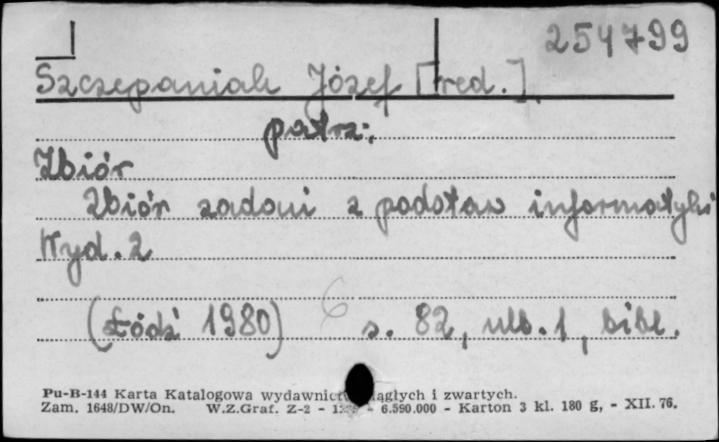 254799
Szczepaniak Józef [red.].
patrz:
Zbiór
Zbiór zadań z podstaw informatyki
Wyd. 2
(Łódź 1980) 6 s. 82, nlb. 1, bibl.
Pu-B-144 Karta Katalogowa wydawnictw ciągłych i zwartych.
Zam. 1648/DW/On. W.Z.Graf. Z-2 - - 6.590.000 - Karton 3 kl. 180 g, - XII. 76.